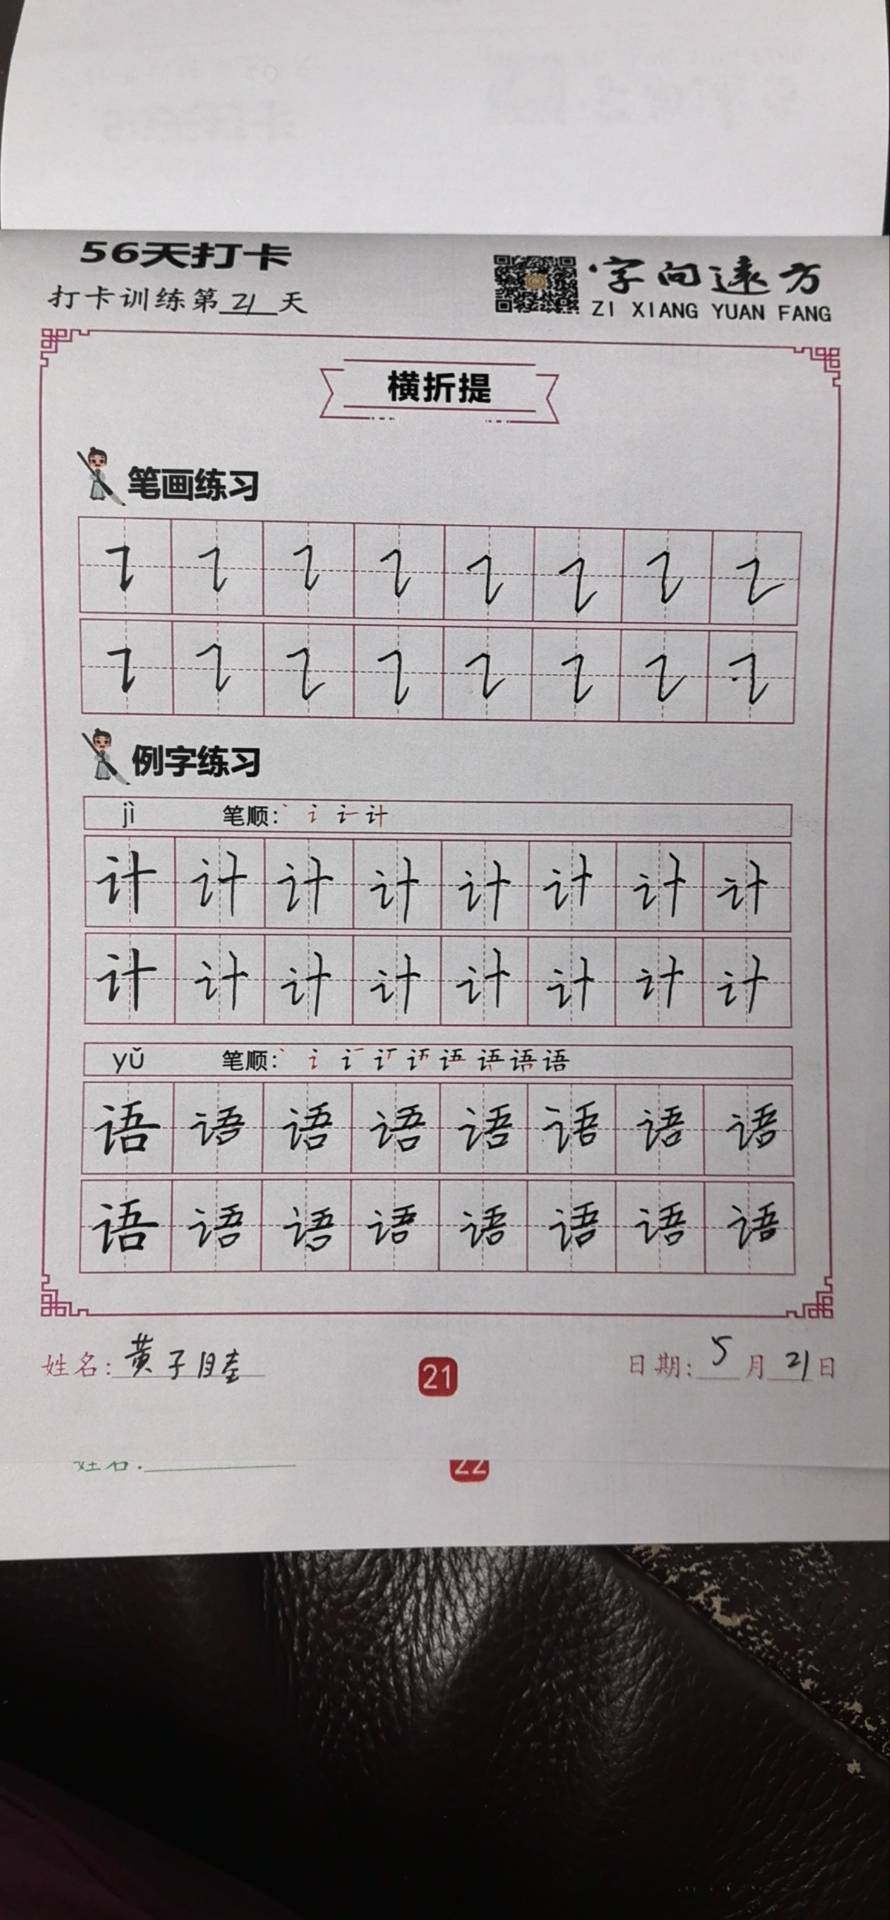 56天打卡
打卡训练第21天
字向远方
ZI XIANG YUAN FANG
横折提
笔画练习
例字练习
jì 笔顺: 计
计 计 计 计 计 计 计 计
计 计 计 计 计 计 计 计
yǔ 笔顺: 语
语 语 语 语 语 语 语 语
语 语 语 语 语 语 语 语
姓名: 黄子
21
日期: 5月21日
姓名:
22